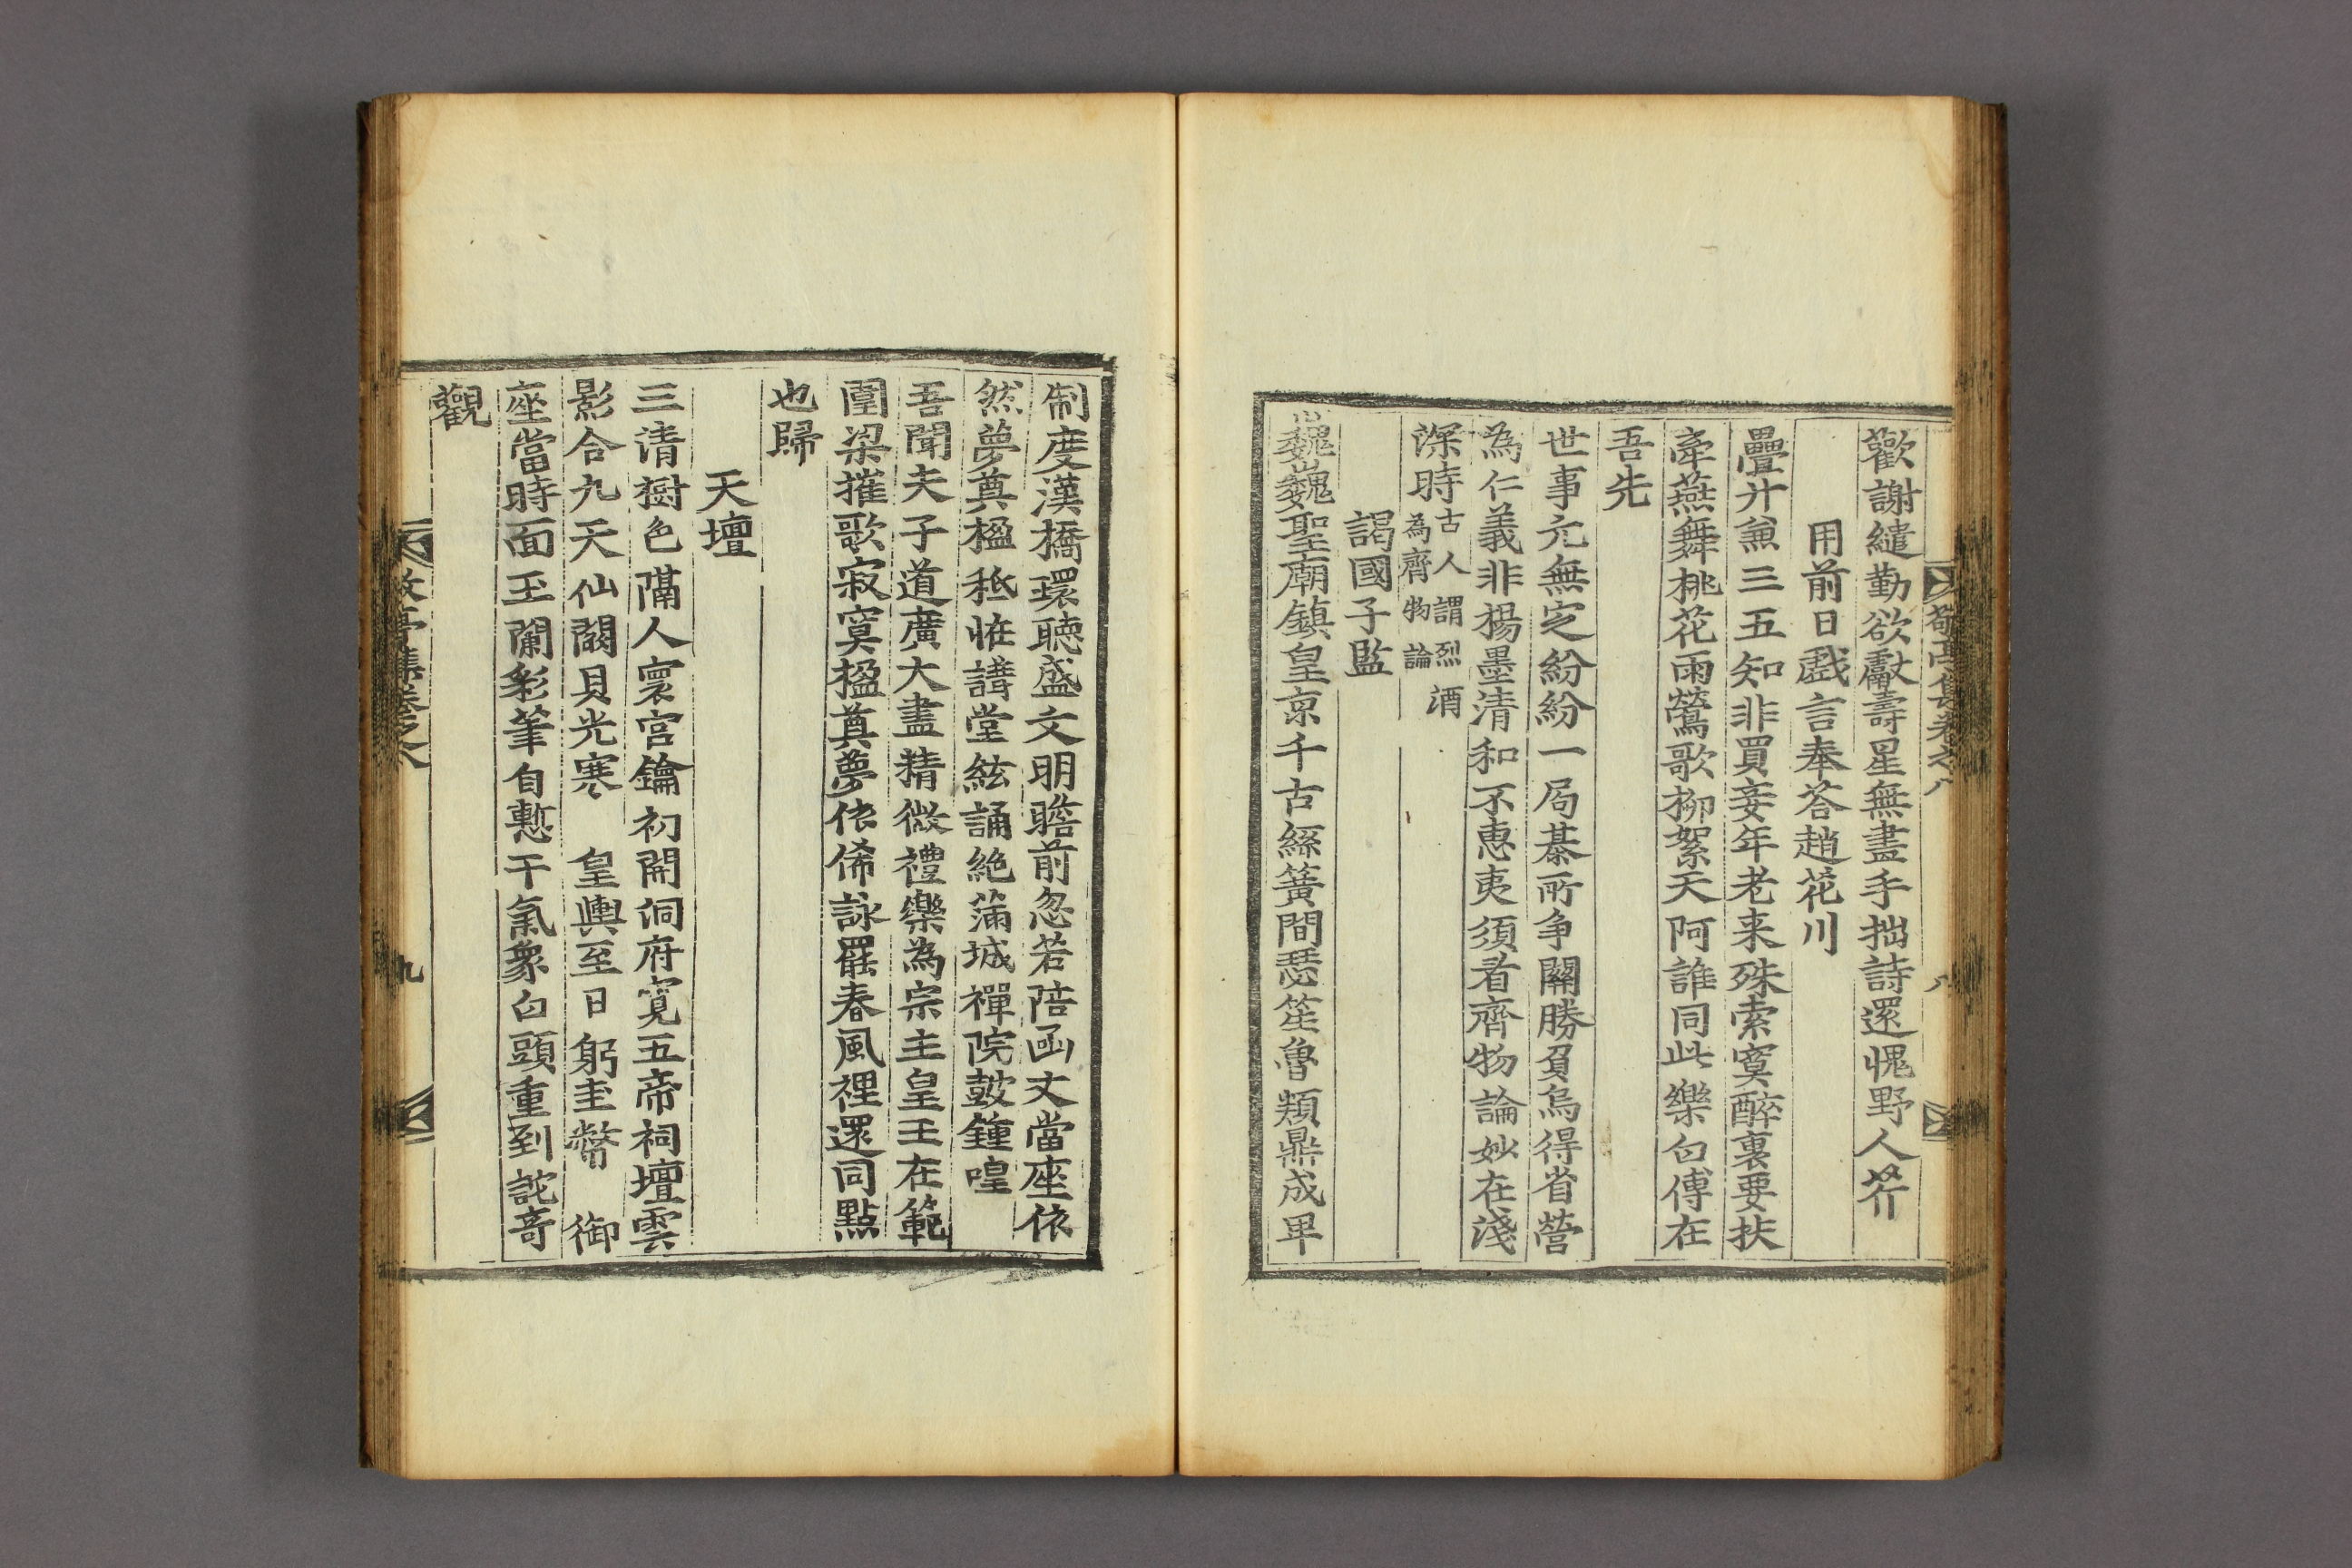 敬亭集卷之八
八
歡謝繾勤欲獻壽星無盡手拙詩還愧野人芹
用前日戲言奉答趙花川
疊廾兼三五知非買妾年老来殊索寞醉裏要扶
牽燕舞桃花雨鶯歌柳絮天阿誰同此樂白傅在
吾先
世事元無定紛紛一局棊所争關勝負烏得省營
為仁義非楊墨清和不惠夷須看齊物論妙在淺
深時古人謂烈酒
為齊物論
謁國子監
巍巍聖廟鎮皇京千古絲簧間瑟笙魯頖鼎成卑
制度漢橋環聴盛文明瞻前忽若陪函丈當座依
然夢奠楹秪恠講堂絃誦絶滿城禪院鼓鍾喤
吾聞夫子道廣大盡精微禮樂為宗主皇王在範
圍梁摧歌寂寞楹奠夢依俙詠罷春風裡還同點
也歸
天壇
三清樹色隔人寰宮鑰初開侗府寬五帝祠壇雲
影合九天仙闕貝光寒　皇輿至日躬圭幣　御
座當時面玉闌彩筆自慙干氣象白頭重到詫竒
觀
敬亭集卷之八
九